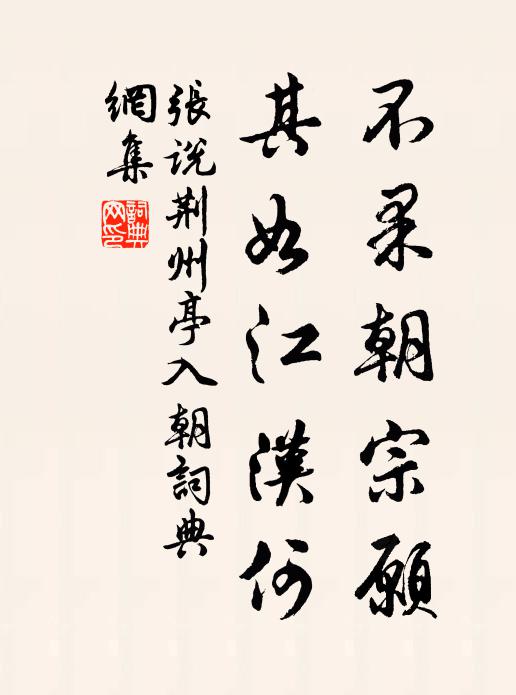 不果朝宗願
其如江漢何
張說荆州亭入朝詞典
網集
詞典
网印